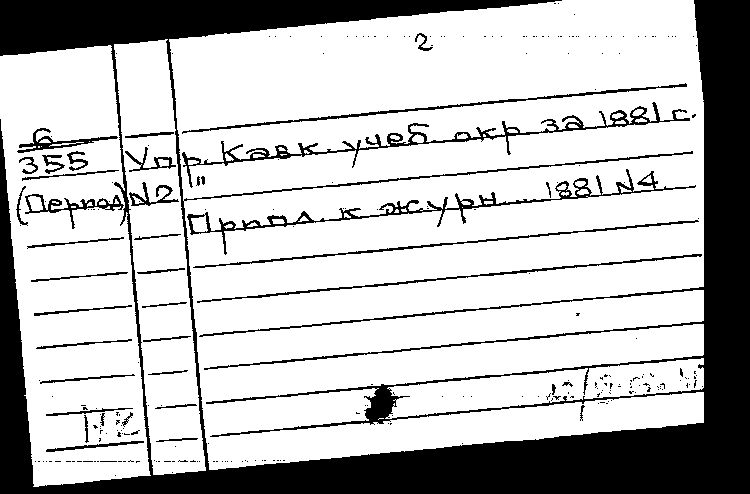 2
6
355 Упр. Кавк. учеб окр за 1881 г.
(Период) N2 "
Прилож. к журн... 1881 N4
НК